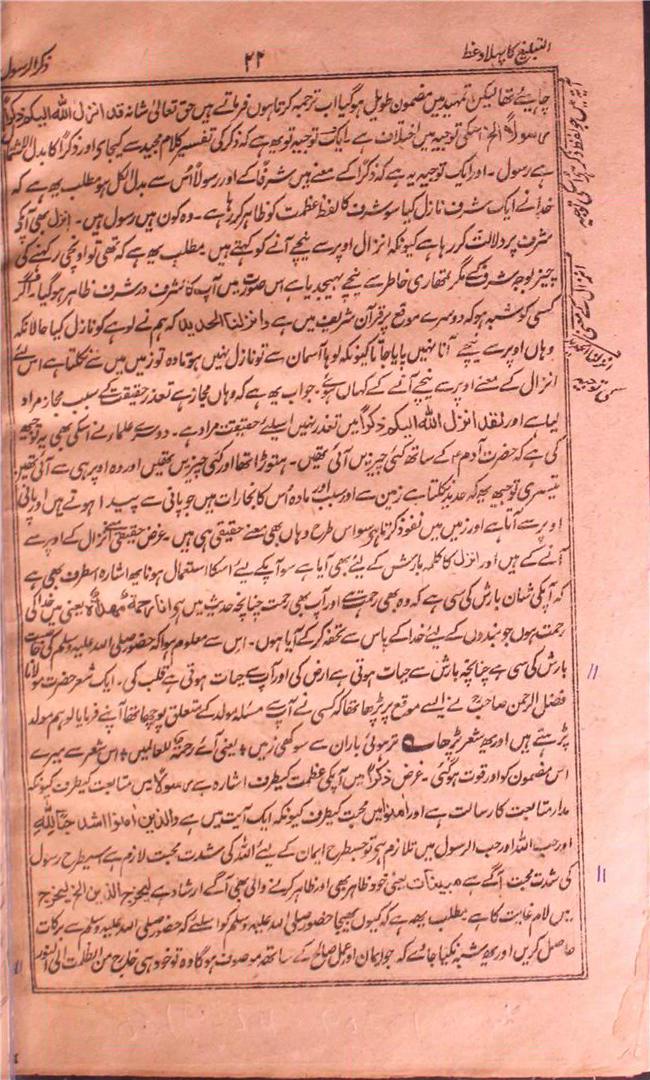 التبلیغ کا پہلا وعظ
۲۲
ذکر الرسول
چاہیئے تھا لیکن تمہید میں مضمون طویل ہو گیا اب ترجمہ کرتا ہوں فرماتے ہیں حق تعالیٰ شانہ قد انزل اللہ الیکم ذکراً
رسولاً الخ اسکی توجیہ میں اختلاف ہے ایک توجیہ تو یہ ہے کہ ذکر کی تفسیر کلام مجید سے کیجاوے اور ذکراً کا بدل الاشتمال
ہے رسول۔ اور ایک توجیہ یہ ہے کہ ذکراً کے معنے ہیں شرفاً کے اور رسولاً اُس سے بدل الکل ہو مطلب یہ ہے کہ
خدا نے ایک شرف نازل کیا سو شرف کا لفظ عظمت کو ظاہر کر رہا ہے۔ وہ کون ہیں رسول ہیں۔ انزل بھی آپکے
شرف پر دلالت کر رہا ہے کیونکہ انزال اوپر سے نیچے آنے کو کہتے ہیں مطلب یہ ہے کہ تھی تو اونچی رکھنے کی
چیز بوجہ شرف کے مگر تمھاری خاطر سے نیچے بھیجدیا ہے اس صورت میں آپ کا شرف در شرف ظاہر ہو گیا۔ اگر
کسی کو شبہ ہو کہ دوسرے موقع پر قرآن شریف میں ہے وانزلنا الحدید کہ ہم نے لوہے کو نازل کیا حالانکہ
وہاں اوپر سے نیچے آنا نہیں پایا جاتا کیونکہ لوہا آسمان سے تو نازل نہیں ہوتا وہ تو زمین میں سے نکلتا ہے اس لئے
انزال کے معنے اوپر سے نیچے آنے کے کہاں ہوئے۔ جواب یہ ہے کہ وہاں مجاز ہے تعذر حقیقت کے سبب مجاز مراد
لیا ہے اور لقد انزل اللہ الیکم ذکراً میں تعذر نہیں اسلئے حقیقت مراد ہے۔ دوسرے علماء نے اسکی بھی یہ توجیہ
کی ہے کہ حضرت آدمؑ کے ساتھ کئی چیزیں آئی تھیں۔ ہتوڑا تھا اور کئی چیزیں تھیں اور وہ اوپر ہی سے آئی تھیں
تیسری توجیہ یہ ہے کہ حدید نکلتا ہے زمین سے اور سبب اور مادہ اُس کا بخارات ہیں جو پانی سے پیدا ہوتے ہیں اور پانی
اوپر سے آتا ہے اور زمین میں نفوذ کرتا ہے سو اس طرح وہاں بھی معنے حقیقی ہی ہیں۔ غرض حقیقی معنے انزال کے اوپر سے
آنے کے ہیں اور انزل کا کلمہ بارش کے لیئے بھی آیا ہے سو آپکے لیئے اسکا استعمال ہونا یہ اشارہ اسطرف بھی ہے
کہ آپکی شان بارش کی سی ہے کہ وہ بھی رحمت ہے اور آپ بھی رحمت چنانچہ حدیث میں ہے انا رحمة مهداة یعنی میں خدا کی
رحمت ہوں جو بندوں کے لیئے خدا کے پاس سے تحفہ کر کے آیا ہوں۔ اس سے معلوم ہوا کہ حضور صلی اللہ علیہ وسلم کی خاصیت
بارش کی سی ہے چنانچہ بارش سے حیات ہوتی ہے ارض کی اور آپسے حیات ہوتی ہے قلب کی۔ ایک شعر حضرت مولانا
فضل الرحمن صاحبؒ نے ایسے موقع پر پڑھا تھا کہ کسی نے آپسے مسئلہ مولد کے متعلق پوچھا تھا آپنے فرمایا لو ہم مولد
پڑہتے ہیں اور یہ شعر پڑھا ؎ تر ہوئی باراں سے سوکھی زمیں ٭ یعنی آئے رحمة للعالمیں ٭ اس شعر سے میرے
اس مضمون کو اور قوت ہو گئی۔ غرض ذکراً میں آپکی عظمت کیطرف اشارہ ہے رسولاً میں متابعت کیطرف کیونکہ
مدار متابعت کا رسالت ہے اور اٰمنوا میں محبت کیطرف کیونکہ ایک آیت میں ہے والذین اٰمنوا اشد حبا للہ
اور حب اللہ اور حب الرسول میں تلازم ہے تو جسطرح ایمان کے لیئے اللہ کی شدت محبت لازم ہے اسیطرح رسول
کی شدت محبت آگے ہے مبینات یعنی خود ظاہر بھی اور ظاہر کرنے والی بھی آگے ارشاد ہے لیخرج الذین الخ لیخرج
میں لام غایت کا ہے مطلب یہ ہے کہ کیوں بھیجا حضور صلی اللہ علیہ وسلم کو اسلئے کہ حضور صلی اللہ علیہ وسلم سے برکات
حاصل کریں اور یہ شبہ نکیا جائے کہ جو ایمان اور عمل صالح کے ساتھ موصوف ہوگا وہ تو خود ہی خارج من الظلمٰت الی النور